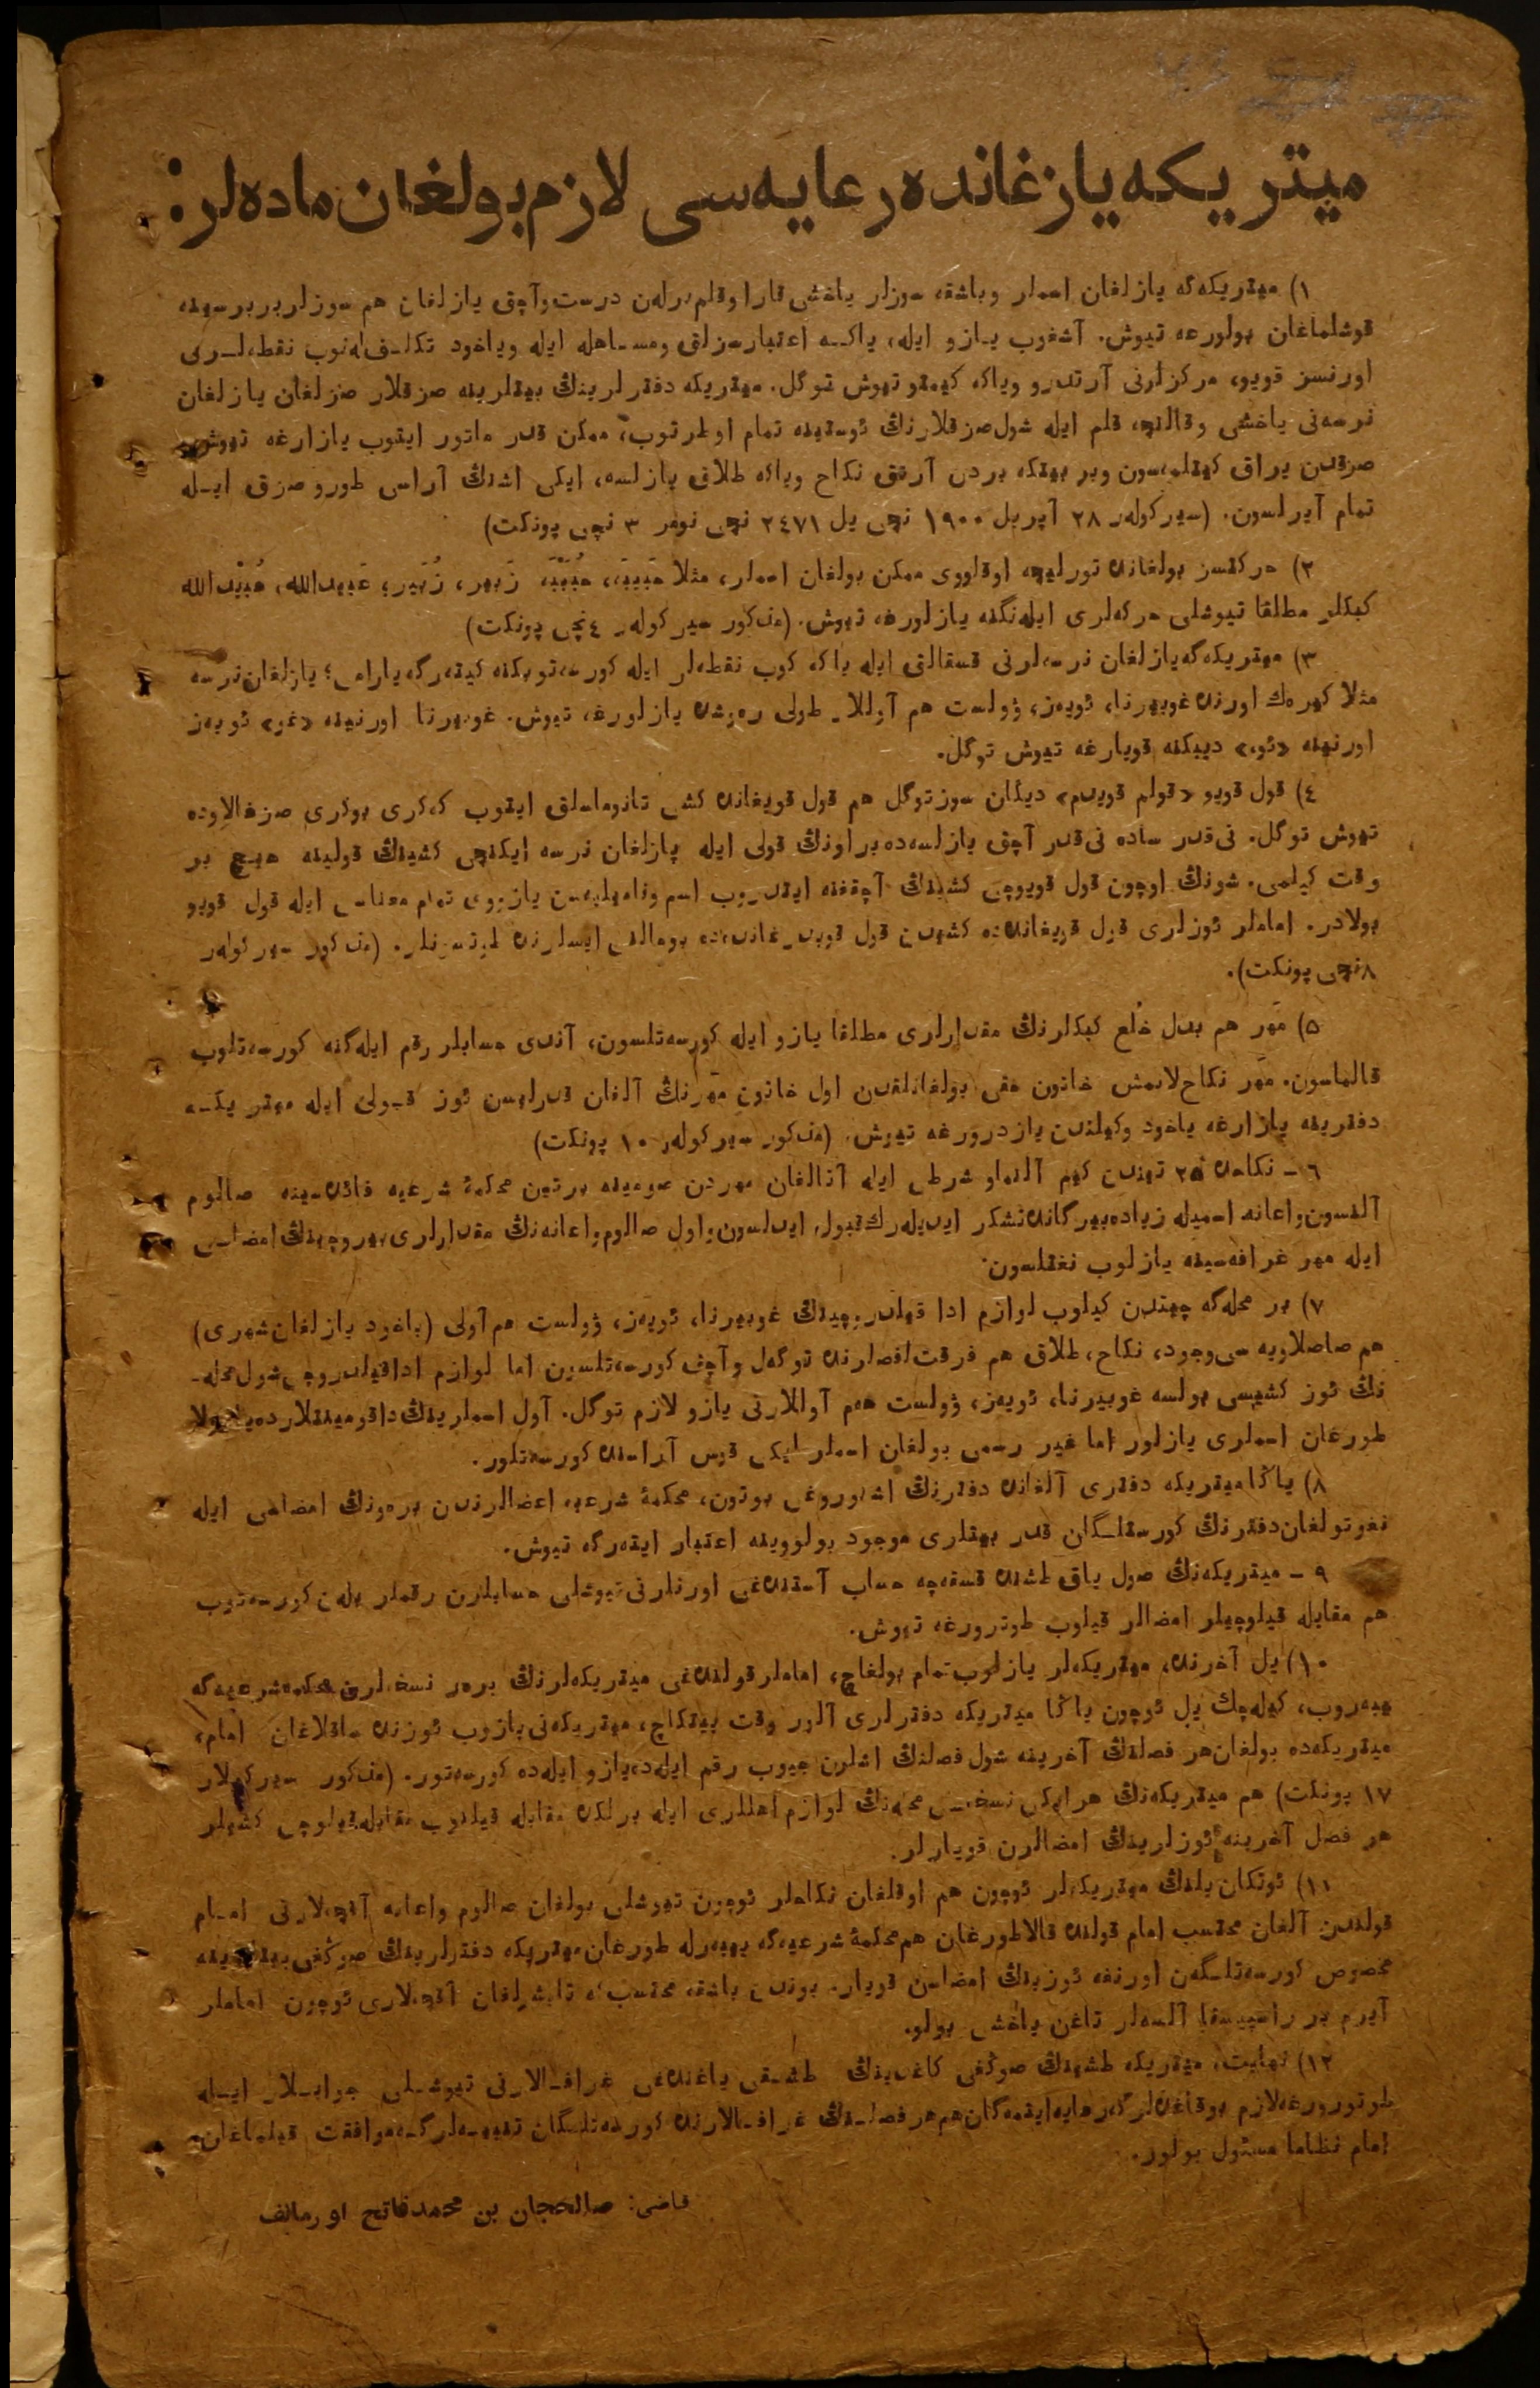 ميتريكه يازغانده رعايه‌سی لازم بولغان ماده‌لر:
١) ميتريكه‌گه يازلغان اسملر وباشقه سوزلر ياخشی قارا وقلم برله‌ن درست وآچق يازلغان هم سوزلر بر برسينه
قوشلماغان بولورغه تيوش. آشغوب يازو ايله، ياكه اعتبارسزلق ومساهله ايله وياخود تكلف‌له‌نوب نقطه‌لرنی
اورنسز قويو، مركزلرنی آرتدرو وياكه كيمتو تيوش توگل. ميتريكه دفترلرينڭ بيتلرينه صزقلار صزلغان يازلغان
نرسه‌نی ياخشی وقالنچه قلم ايله شول صزقلارنڭ ئوستينه تمام اولرتوب، ممكن قدر ماتور ايتوب يازارغه تيوش
صزقدن يراق كيتلمه‌سون وبر بيتكه بردن آرتق نكاح وياكه طلاق يازلسه، ايكی اشنڭ آراسی طورو صزق ايله
تمام آيرلسون. (سيركولەر ٢٨ آپريل ١٩٠٠ نچی يل ٢٤٧١ نچی نومر ٣ نچی پونكت)
٢) حركتسز بولغانده تورليچه اوقلووی ممكن بولغان اسملر، مثلا حَبيبَه، حُبَيْبَه، زَبير، زُبَير؛ عَبيدالله، عُبَيْدالله
كبكلر مطلقا تيوشلی حركه‌لری ايله‌نگنه يازلورغه تيوش. (مذكور سيركولەر ٤ نچی پونكت)
٣) ميتريكه‌گه يازلغان نرسه‌لرنی قسقالتی ايله ياكه كوب نقطه‌لر ايله كورسه‌توبكنه كيته‌رگه يارامی؛ يازلغان نرسه
مثلا كيره‌ك اورنده غوبيرنا، ئويەز، ۋولست هم آوللار طولی ره‌وشده يازلورغه تيوش. غوبيرنا اورنينه «غو» ئويەز
اورنينه «ئو» ديبكنه قويارغه تيوش توگل.
٤) قول قويو «قولم قويدم» ديگان سوز توگل هم قول قويغانده كشی تانوماسلق ايتوب كه‌كری بوكری صزغالاوده
تيوش توگل. نی‌قدر ساده نی‌قدر آچق يازلسه‌ده براونڭ قولی ايله يازلغان نرسه ايكنچی كشينڭ قولينه هيچ بر
وقت كيلمی. شونڭ اوچون قول قويوچی كشينڭ آچقغنه ايتدروب اسم وفاميليه‌سن يازووی تمام معناسی ايله قول قويو
بولادر. اماملر ئوزلری قول قويغانده‌ده كشيدن قول قويدرغانده‌ده بو‌حالنی ايسلرنده طوتسونلر. (مذكور سيركولەر
٨نچی پونكت).
٥) مَهر هم بدل خُلع كبكلرنڭ مقدارلری مطلقا يازو ايله كورسه‌تلسون، آندی حسابلر رقم ايله‌گنه كورسه‌تلوب
قالماسون. مَهر نكاح‌لانمش خاتون حقی بولغانلقدن اول خاتون مَهرنڭ آلغان قدرليسن ئوز قولی ايله ميتريكه
دفترينه يازارغه ياخود وكيلندن يازدرورغه تيوش. (مذكور سيركولەر ١٠ پونكت)
٦ – نكاحده ٢٥ تيندن كيم آلنماو شرطی ايله آتالغان مهردن صومينه برتين محكمهٔ شرعيه فائده‌سينه صالوم
آلنسون واعانه اسميله زياده بيرگانده تشكر ايديله‌رك قبول ايدلسون واول صالوم واعانه‌نڭ مقدارلری بيروچينڭ امضاسی
ايله مهر غرافه‌سينه يازلوب نغتلسون.
٧) بر محله‌گه چيتدن كيلوب لوازم ادا قيلدروچينڭ غوبيرنا، ئويەز، ۋولست هم آولی (ياخود يازلغان شهری)
هم صاصلاويه‌سی وجود، نكاح، طلاق هم فرقت فصلرنده توگه‌ل وآچق كورسه‌تلسون اما لوازم ادا قيلدروچی شول محله‌-
نڭ ئوز كشيسی بولسه غوبيرنا، ئويەز، ۋولست هم آوللارنی يازو لازم توگل. آول اسملرينڭ داقومينتلارده
طورغان اسملری يازلور اما غير رسمی بولغان اسملر ايكی قوس آراسنده كورسه‌تلور.
٨) ياڭا ميتريكه دفتری آلغانده دفترنڭ اشنوروغی بوتون، محكمهٔ شرعيه اعضالرندن بره‌ونڭ امضاسی ايله
نغوتولغان دفترنڭ كورستلگان قدر بيتلری موجود بولووينه اعتبار ايته‌رگه تيوش.
٩ – ميتريكه‌نڭ صول ياق طشنده قسقه‌چه حساب آستنده‌غی اورنلرنی تيوشلی حسابلرن رقملر بله‌ن كورسه‌توب
هم مقابله قيلوچيلر امضالر قيلوب طوترورغه تيوش.
١٠) يل آخرنده، ميتريكه‌لر يازلوب تمام بولغاچ، اماملر قولنده‌غی ميتريكه‌لرنڭ برەر نسخه‌لرن محكمهٔ شرعيه‌گه
ييبه‌روب، كيله‌چك يل ئوچون ياڭا ميتريكه دفترلری آلور وقت ييتكاچ، ميتريكه‌نی يازوب ئوزنده ساقلاغان امام،
ميتريكه‌ده بولغان هر فصلنڭ آخرينه شول فصلنڭ اشلرن جيوب رقم ايله‌ده يازو ايله‌ده كورسه‌تور. (مذكور سيركولار
١٧ پونكت) هم ميتريكه‌نڭ هر ايكی نسخه‌سی محله‌نڭ لوازم اهللری ايله برلكده مقابله قيلنوب مقابله قيلوچی كشيلر
هر فصل آخرينه ئوزلرينڭ امضالرن قويارلر.
١١) ئوتكان يلنڭ ميتريكه‌لر ئوچون هم اوقلغان نكاحلر ئوچون تيوشلی بولغان صالوم واعانه آقچه‌لارنی امام
قولندن آلغان محتسب امام قولنده قالا طورغان هم محكمهٔ شرعيه‌گه ييبه‌رله طورغان ميتريكه دفترلرينڭ صوڭغی
مخصوص كورسه‌تلگه‌ن اورنغه ئوزينڭ امضاسن قويار. بوندن باشقه محتسب‌كه تاپشرلغان آقچه‌لاری ئوچون اماملر
آيرم بر راسپيسقا آلسه‌لر تاغن ياخشی بولو.
١٢) نهايت، ميتريكه طشينڭ صوڭغی كاغدينڭ طشقی ياغنده‌غی غرافالارنی تيوشلی جوابلار ايله
طوتورورغه لازم بو قاغده‌لرگه رعايه ايتمه‌گان هم هر فصلنڭ غرافالارنده كورسه‌تلگان تنبيه‌لرگه موافقت قيلماغان
امام نظاما مسئول بولور.
قاضی: صالحجان بن محمدفاتح اورمانف